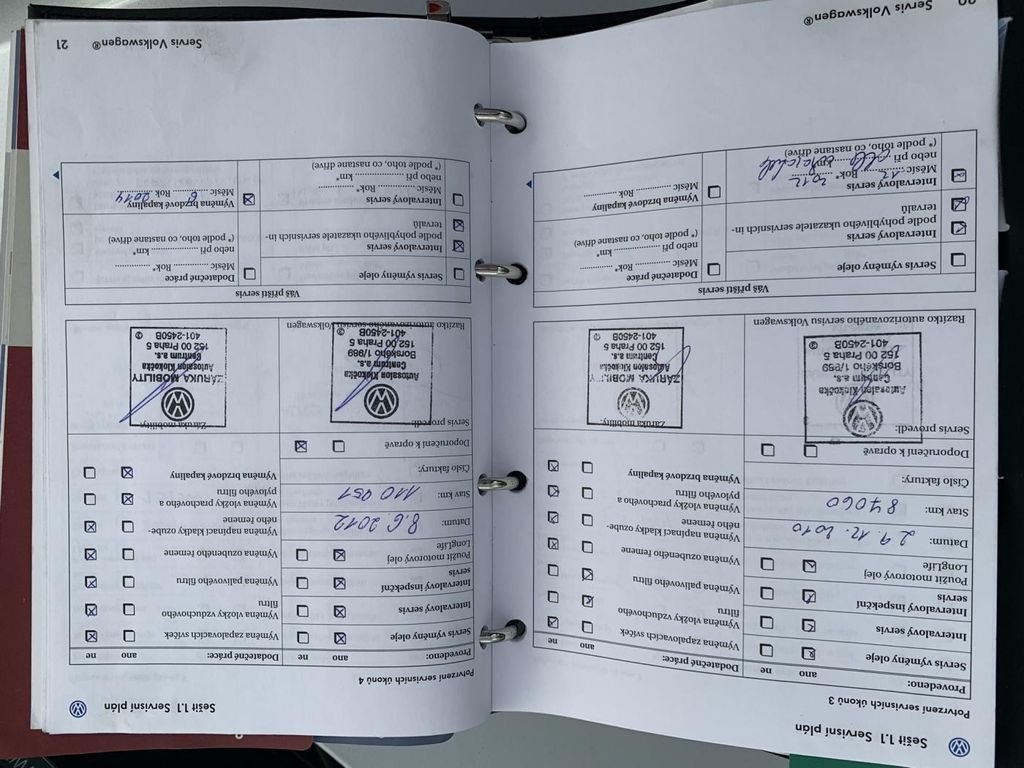 Sešit 1.1 Servisní plán
Potvrzení servisních úkonů 3
Provedeno:
ano
ne
Servis výměny oleje
Intervalový servis
Intervalový inspekční
servis
Použit motorový olej
LongLife
Datum: 29. 12. 2010
Stav km: 87060
Číslo faktury:
Doporučení k opravě
Dodatečné práce:
ano
ne
Výměna zapalovacích svíček
Výměna vložky vzduchového
filtru
Výměna palivového filtru
Výměna ozubeného řemene
Výměna napínací kladky ozube-
ného řemene
Výměna vložky prachového a
pylového filtru
Výměna brzdové kapaliny
Servis provedl:
Autosalon Klokočka
Centrum a.s.
Borského 1/989
152 00 Praha 5
401-2450B
Razítko autorizovaného servisu Volkswagen
Záruka mobility:
ZÁRUKA MOBILITY
Autosalon Klokočka
Centrum a.s.
152 00 Praha 5
401-2450B
Váš příští servis
Servis výměny oleje
Intervalový servis
podle pohyblivého ukazatele servisních in-
tervalů
Intervalový servis
Měsíc 12 Rok* 2012
nebo při km*
(* podle toho, co nastane dříve)
Dodatečné práce
Měsíc Rok*
nebo při km*
(* podle toho, co nastane dříve)
Výměna brzdové kapaliny
Měsíc Rok
Servis Volkswagen®
Sešit 1.1 Servisní plán
Potvrzení servisních úkonů 4
Provedeno:
ano
ne
Servis výměny oleje
Intervalový servis
Intervalový inspekční
servis
Použit motorový olej
LongLife
Datum: 8.6 2012
Stav km: 110 951
Číslo faktury:
Doporučení k opravě
Dodatečné práce:
ano
ne
Výměna zapalovacích svíček
Výměna vložky vzduchového
filtru
Výměna palivového filtru
Výměna ozubeného řemene
Výměna napínací kladky ozube-
ného řemene
Výměna vložky prachového a
pylového filtru
Výměna brzdové kapaliny
Servis provedl:
Autosalon Klokočka
Centrum a.s.
Borského 1/989
152 00 Praha 5
401-2450B
Razítko autorizovaného servisu Volkswagen
Záruka mobility:
ZÁRUKA MOBILITY
Autosalon Klokočka
Centrum a.s.
152 00 Praha 5
401-2450B
Váš příští servis
Servis výměny oleje
Intervalový servis
podle pohyblivého ukazatele servisních in-
tervalů
Intervalový servis
Měsíc Rok*
nebo při km*
(* podle toho, co nastane dříve)
Dodatečné práce
Měsíc Rok*
nebo při km*
(* podle toho, co nastane dříve)
Výměna brzdové kapaliny
Měsíc 6 Rok 2014
Servis Volkswagen® 21